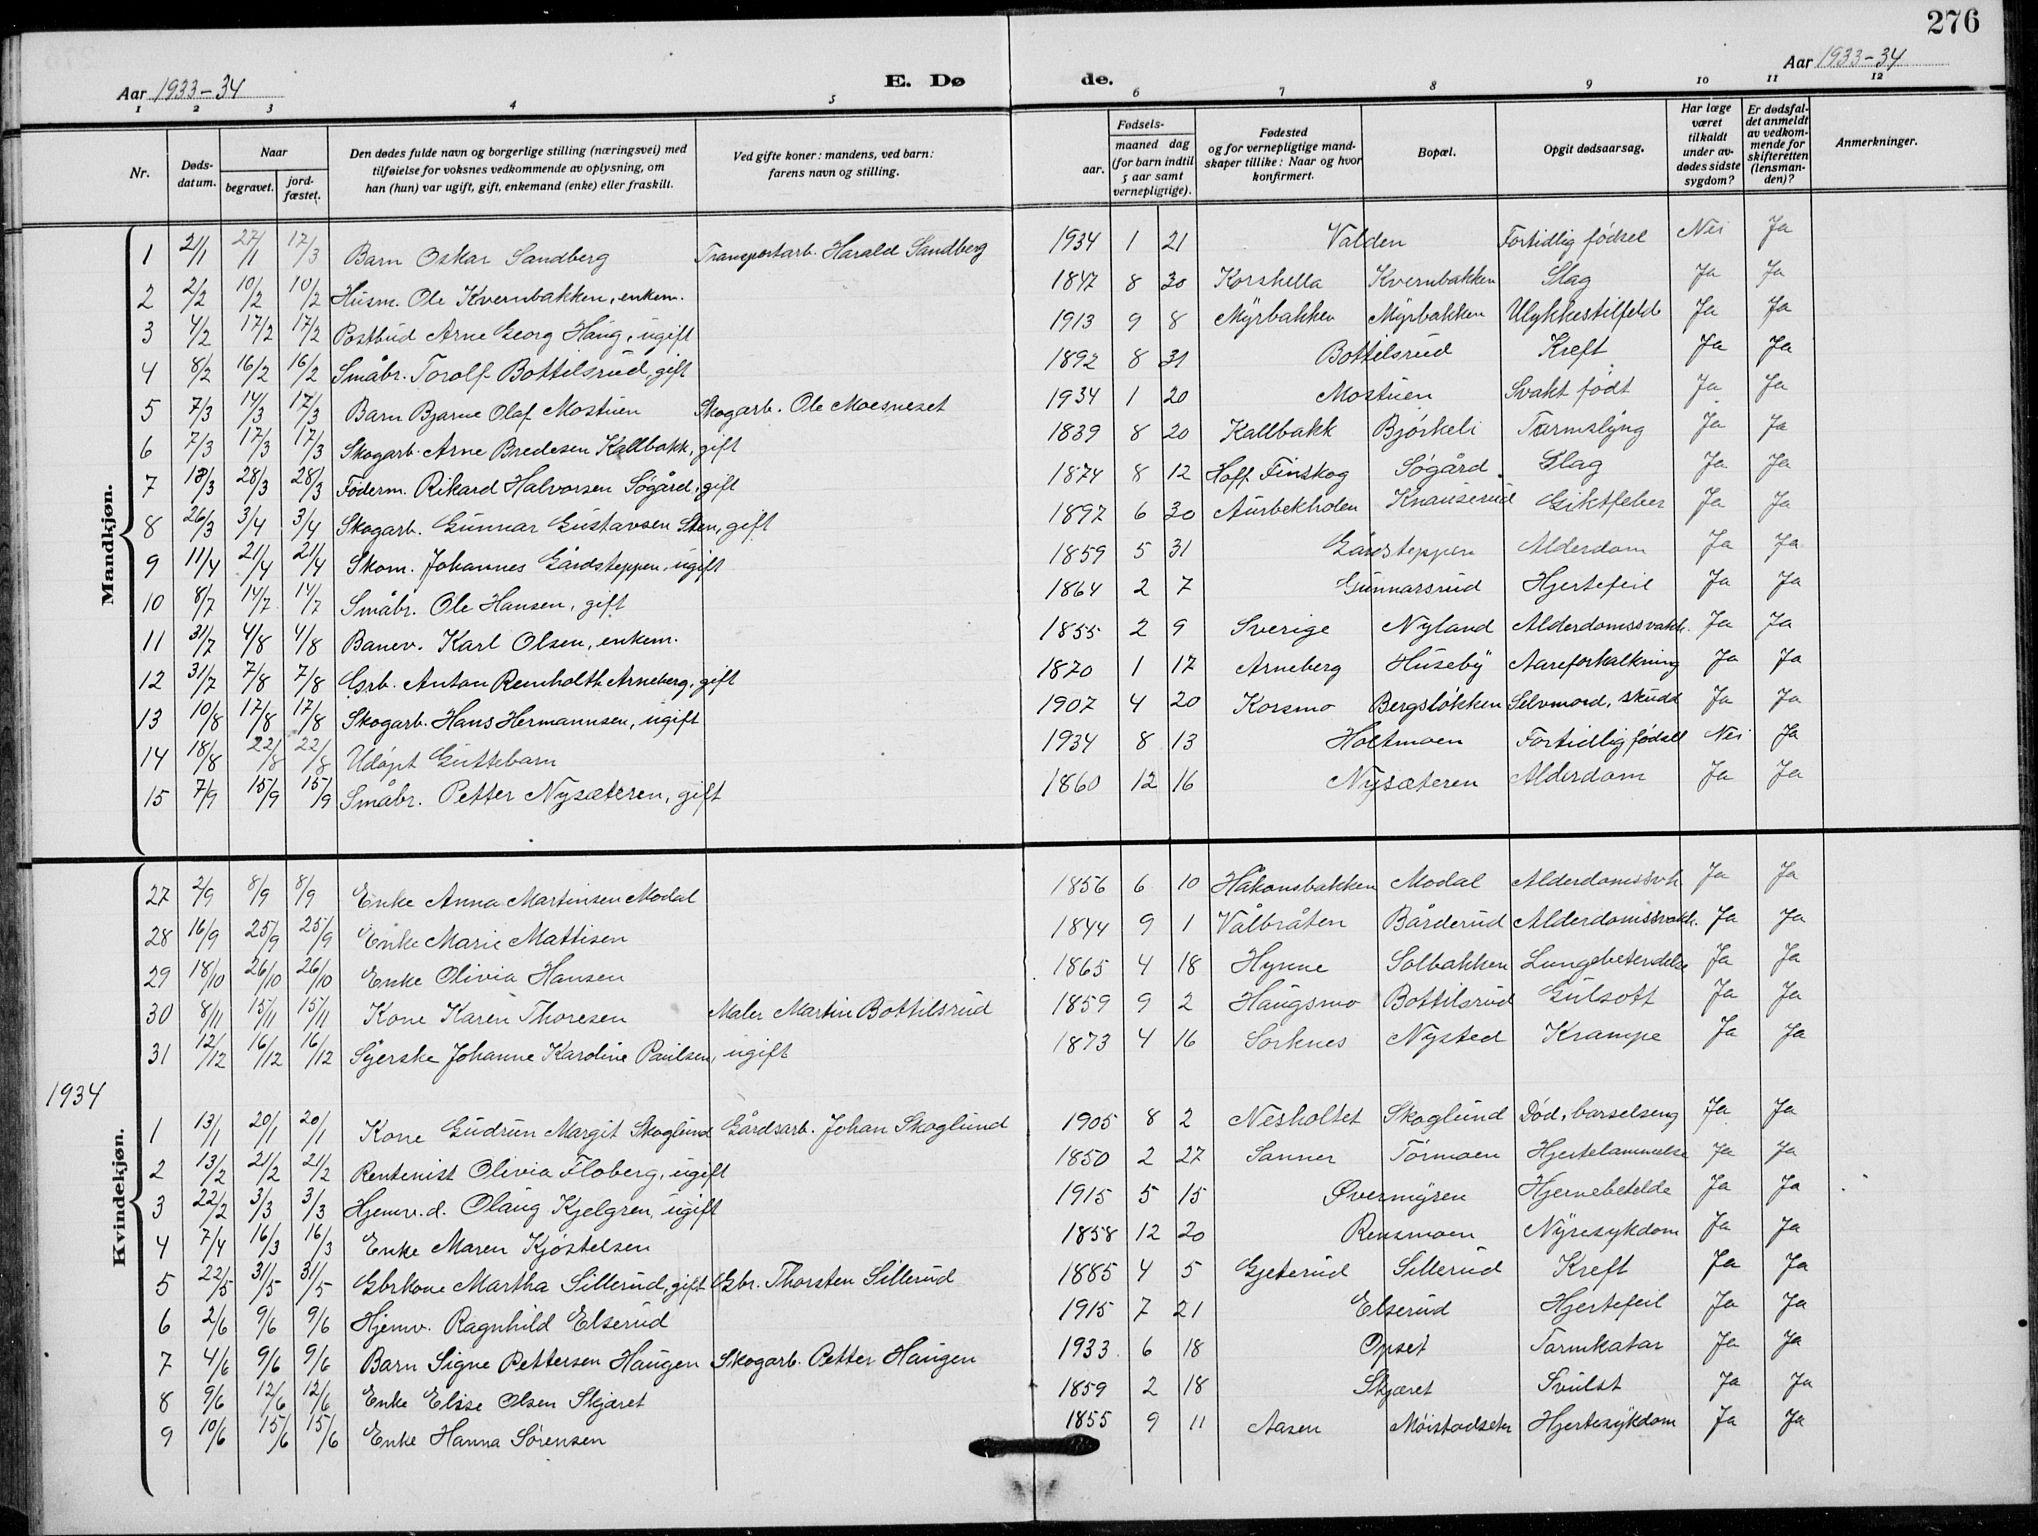 276
Aar 1933-34 E. Dø de. Aar 1933-34
1 2 3 4 5 6 7 8 9 10 11 12
Nr. Døds-datum. Naar begravet. jord-fæstet. Den dødes fulde navn og borgerlige stilling (næringsvei) med tilføielse for voksnes vedkommende av oplysning, om han (hun) var ugift, gift, enkemand (enke) eller fraskilt. Ved gifte koner: mandens, ved barn: farens navn og stilling. Fødsels- aar. maaned dag (for barn indtil 5 aar samt vernepligtige). Fødested og for vernepligtige mand-skaper tillike: Naar og hvor konfirmert. Bopæl. Opgit dødsaarsag. Har læge været tilkaldt under av-dødes sidste sygdom? Er dødsfal-det anmeldt av vedkom-mende for skifteretten (lensman-den)? Anmerkninger.
Mandkjøn.
1 21/1 27/1 17/3 Barn Oskar Sandberg Transportarb. Harald Sandberg 1934 1 21 Valden Fortidlig fødsel Nei Ja
2 2/2 10/2 10/2 Husm. Ole Kvernbakken, enkem. 1847 8 30 Korshella Kvernbakken Slag Ja Ja
3 4/2 17/2 17/2 Postbud Arne Georg Haug, ugift 1913 9 8 Myrbakken Myrbakken Ulykkestilfeld Ja Ja
4 8/2 16/2 16/2 Småbr. Torolf Bottilsrud, gift 1892 8 31 Bottilsrud Kreft Ja Ja
5 7/3 14/3 17/3 Barn Bjarne Olaf Mostuen Skogarb. Ole Moesneset 1934 1 20 Mostuen Svakt født Ja Ja
6 7/3 17/3 17/3 Skogarb. Arne Bredesen Kallbakk, gift 1839 8 20 Kallbakk Bjørkeli Tarmslyng Ja Ja
7 18/3 28/3 28/3 Føderm. Rikard Halvorsen Søgård, gift 1874 8 12 Hoff Finskog Søgård Slag Ja Ja
8 26/3 3/4 3/4 Skogarb. Gunnar Gustavsen Sten, gift 1897 6 30 Aurbekholen Knauserud Giktfeber Ja Ja
9 11/4 21/4 21/4 Skom. Johannes Gårdsteppen, ugift 1859 5 31 Gårdsteppen Alderdom Ja Ja
10 8/7 14/7 14/7 Småbr. Ole Hansen, gift 1864 2 7 Gunnarsrud Hjertefeil Ja Ja
11 31/7 4/8 4/8 Banev. Karl Olsen, enkem. 1855 2 9 Sverige Nyland Alderdomssvakh. Ja Ja
12 31/7 7/8 7/8 Grb. Anton Reinholth Arneberg, gift 1870 1 17 Arneberg Huseby Aareforkalkning Ja Ja
13 10/8 17/8 17/8 Skogarb. Hans Hermannsen, ugift 1907 4 20 Korsmo Bergsløkken Selvmord, skudd Ja Ja
14 18/8 22/8 22/8 Udøpt Guttebarn 1934 8 13 Holtmoen Fortidlig fødsll Nei Ja
15 7/9 15/9 15/9 Småbr. Petter Nysæteren, gift 1860 12 16 Nysæteren Alderdom Ja Ja
27 2/9 8/9 8/9 Enke Anna Martinsen Modal 1856 6 10 Håkonsbakken Modal Alderdomssvh Ja Ja
28 16/9 25/9 25/9 Enke Marie Mattisen 1844 9 1 Vålbråten Bårderud Alderdomssvakh. Ja Ja
29 18/10 26/10 26/10 Enke Olivia Hansen 1865 4 18 Hynne Solbakken Lungebetendelse Ja Ja
30 8/11 15/11 15/11 Kone Karen Thoresen Maler Martin Bottilsrud 1859 9 2 Haugsmo Bottilsrud Gulsott Ja Ja
31 12/12 16/12 16/12 Syerske Johanne Karoline Paulsen, ugift 1873 4 16 Sorknes Nysted Krampe Ja Ja
1934
Kvindekjøn.
1 13/1 20/1 20/1 Kone Gudrun Margit Skoglund Gårdsarb. Johan Skoglund 1905 8 2 Nesholtet Skoglund Død i barselseng Ja Ja
2 13/2 21/2 21/2 Rentenist Olivia Floberg, ugift 1850 2 27 Sanner Tørmoen Hjertelammelse Ja Ja
3 22/2 3/3 3/3 Hjemv. d. Olaug Kjelgren, ugift 1915 5 15 Øvermyren Hjernebetelde Ja Ja
4 7/4 16/3 16/3 Enke Maren Kjøstelsen 1858 12 20 Rensmoen Nyresykdom Ja Ja
5 22/5 31/5 31/5 Gbrkone Martha Sillerud, gift Gbr. Thorsten Sillerud 1885 4 5 Gjeterud Sillerud Kreft Ja Ja
6 2/6 9/6 9/6 Hjemv. Ragnhild Elserud 1915 7 21 Elserud Hjertefeil Ja Ja
7 4/6 9/6 9/6 Barn Signe Pettersen Haugen Skogarb. Petter Haugen 1933 6 18 Opset Tarmkatar Ja Ja
8 9/6 12/6 12/6 Enke Elise Olsen Skjæret 1859 2 18 Skjæret Svulst Ja Ja
9 10/6 15/6 15/6 Enke Hanna Sørensen 1855 9 11 Aasen Møistadseter Hjertesykdom Ja Ja